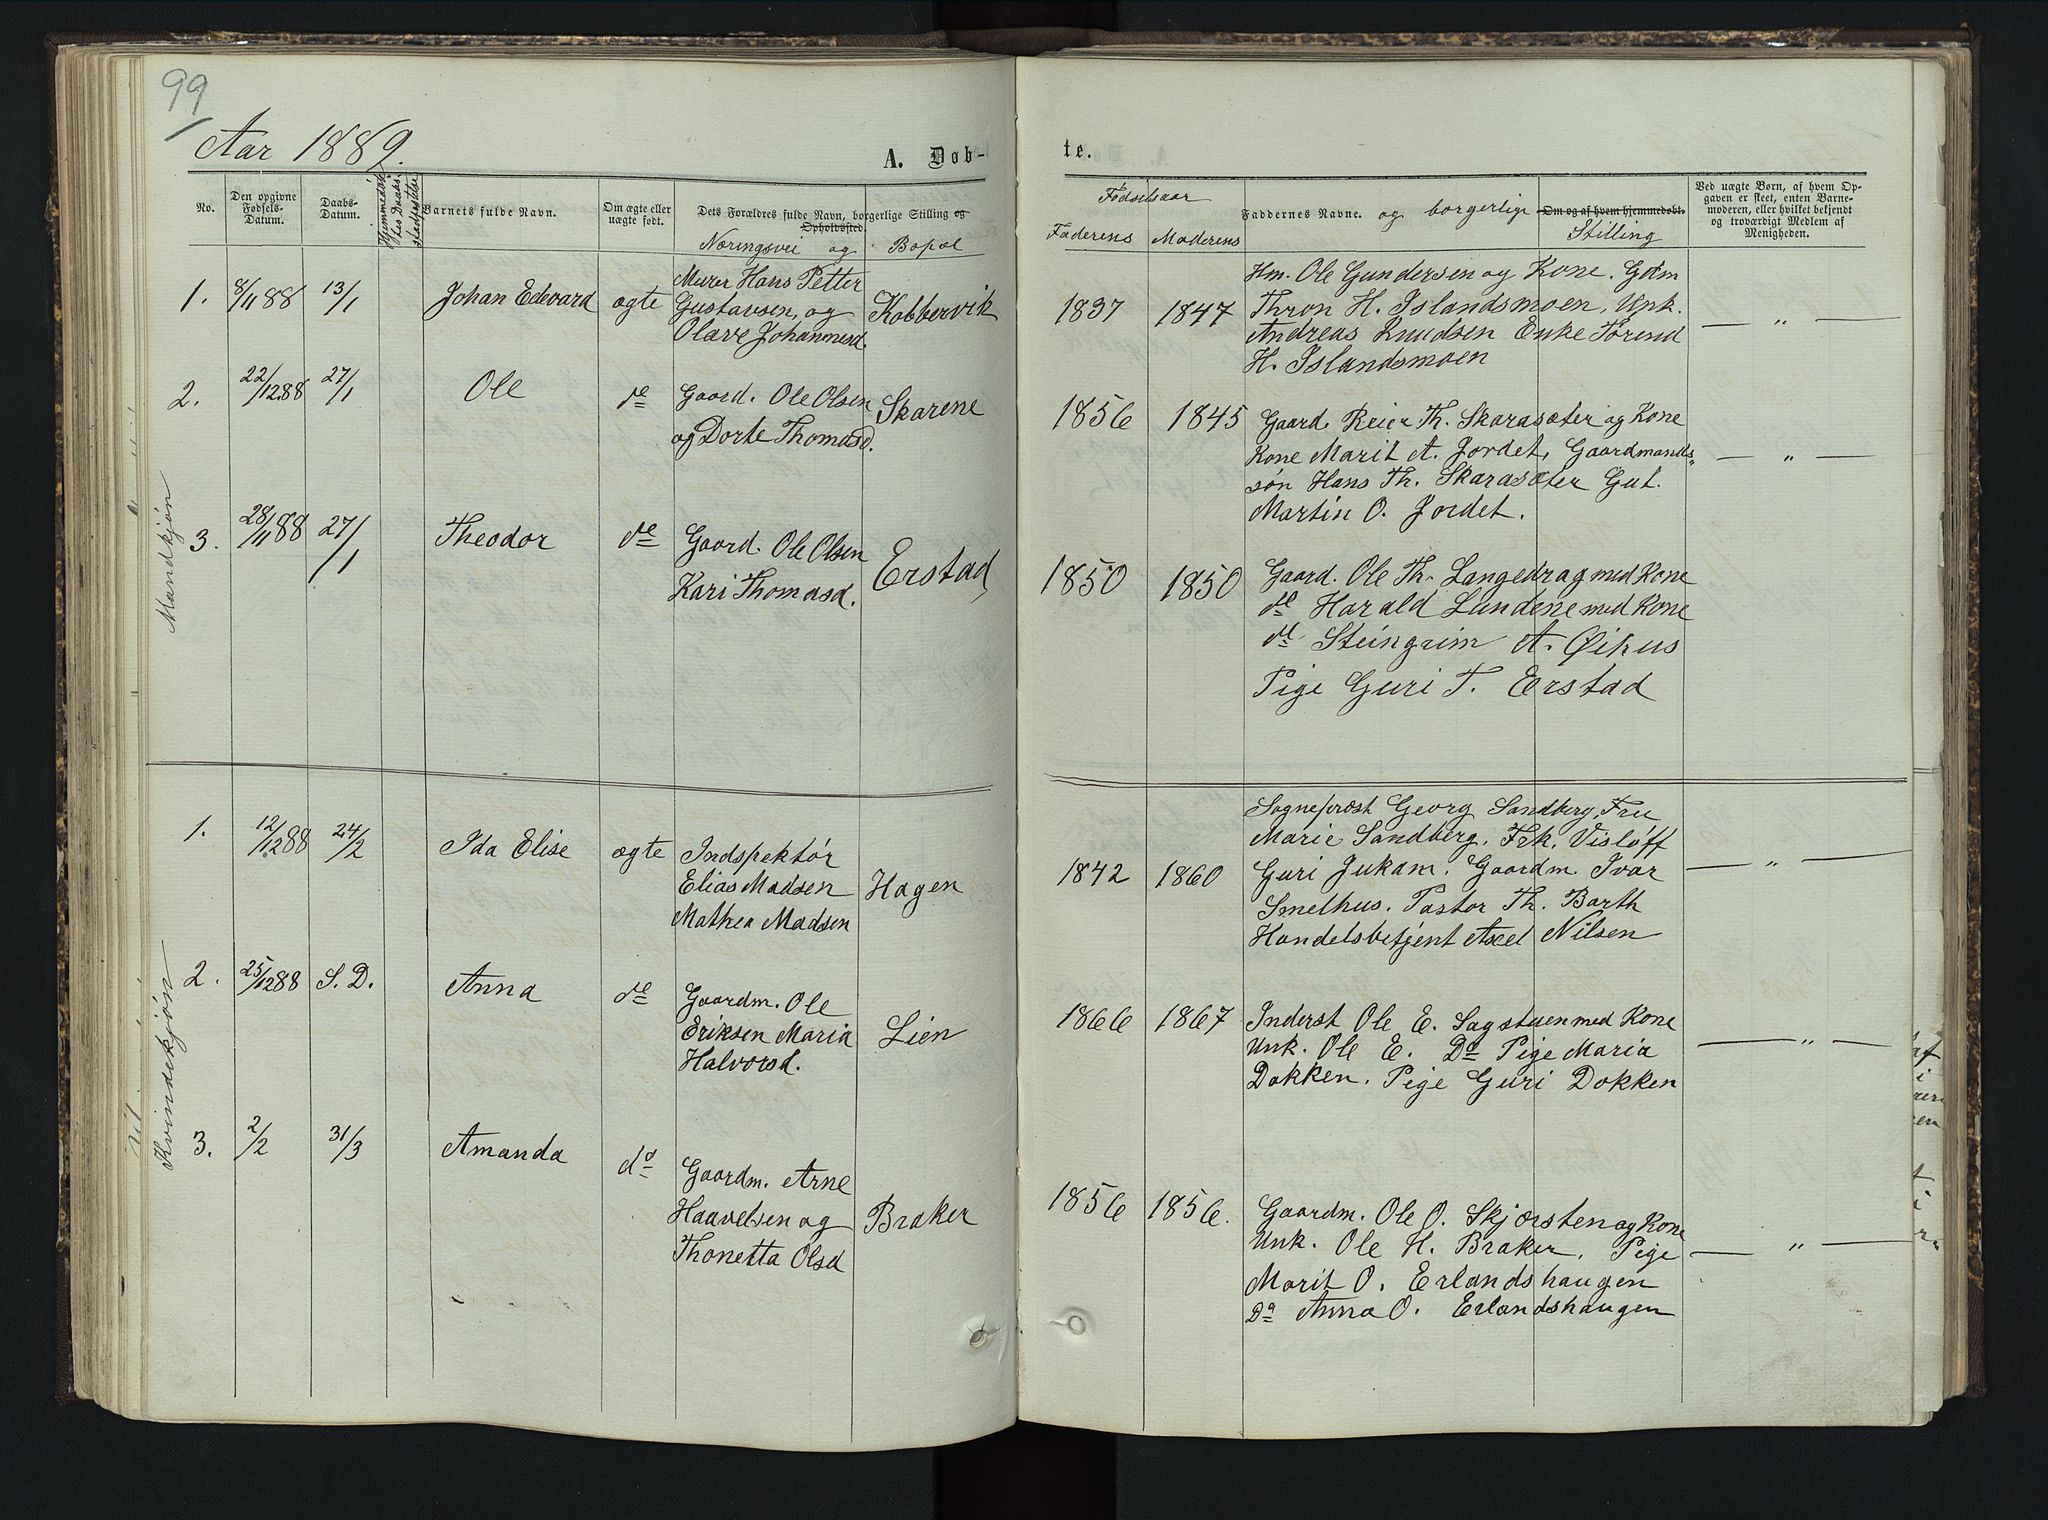 99
Aar 1889.
A. Døb-
te.
No.
Den opgivne Fødsels-Datum.
Daabs-Datum.
Barnets fulde Navn.
Om ægte eller uægte født.
Dets Forældres fulde Navn, borgerlige Stilling og Opholdssted.
Næringsvei og Bopæl
Fødselsaar
Faderens Moderens
Faddernes Navne. og borgerlige Stilling
Om og af hvem hjemmedøbt.
Ved uægte Børn, af hvem Op-
gaven er skeet, enten Barne-
moderen, eller hvilket bekjendt
og troværdigt Medlem af
Menigheden.
Mandkjøn
1. 8/11 88 13/1 Johan Edevard ægte
Murer Hans Petter
Gustavsen, og
Olave Johannesd.
Kobbervik
1837 1847
Hm. Ole Gundersen og Kone. Gdm
Thron H. Islandsmoen, Unk.
Andreas Knudsen Enke Torend
H. Islandsmoen
— " —
2. 22/12 88 27/1 Ole de
Gaard. Ole Olsen
og Dorte Thomasd.
Skarene
1856 1845
Gaard. Reier Th. Skarasæter og Kone
Kone Marit A. Jordet, Gaardmands
søn Hans Th. Skarasæter Gut.
Martin O. Jordet.
— " —
3. 28/11 88 27/1 Theodor de
Gaard. Ole Olsen
Kari Thomasd.
Erstad
1850 1850
Gaard. Ole Th. Langedrag med Kone
de Harald Lundene med Kone
de Steingrim A. Øihus
Pige Guri T. Erstad
Kvindekjøn
1. 12/12 88 24/2 Ida Elise ægte
Indspektør
Elias Madsen
Mathea Madsen
Hagen
1842 1860
Sognepræst Georg Sandberg, Fru
Marie Sandberg, Frk. Visløff
Guri Jukam. Gaardm. Ivar
Smelhus. Pastor Th. Barth
Handelsbetjent Axel Nilsen
— " —
2. 25/12 88 S. D. Anna de
Gaardm. Ole
Eriksen Maria
Halvorsd.
Lien
1866 1867
Inderst Ole E. Sagstuen med Kone
Unk. Ole E. Do Pige Maria
Dokken. Pige Guri Dokken
— " —
3. 2/2 31/3 Amanda do
Gaardm. Arne
Haavelsen og
Thonetta Olsd
Braker
1856 1856.
Gaardm. Ole O. Skjørsten og Kone
Unk. Ole H. Braker. Pige
Marit O. Erlandshaugen
Do Anna O. Erlandshaugen
— " —